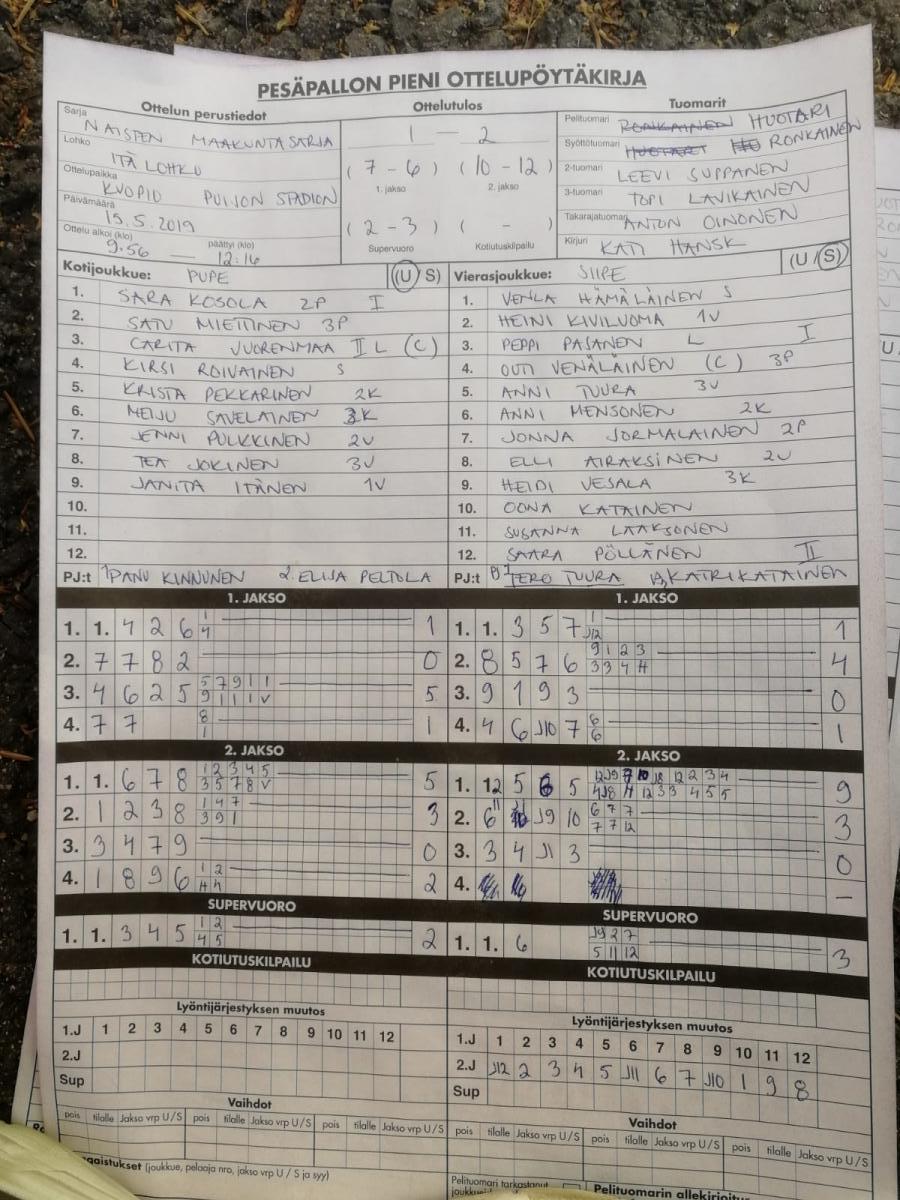 PESÄPALLON PIENI OTTELUPÖYTÄKIRJA
Ottelun perustiedot Ottelutulos Tuomarit
Sarja NAISTEN MAAKUNTASARJA
Lohko ITÄ LOHKO
Ottelupaikka KUOPIO PUIJON STADION
Päivämäärä 15.5.2019
Ottelu alkoi (klo) 9.56 — päättyi (klo) 12:16
1 — 2
(7 - 6) (10 - 12)
1. jakso 2. jakso
(2 - 3) ( - )
Supervuoro Kotiutuskilpailu
Pelituomari RONKAINEN HUOTARI
Syöttötuomari HUOTARI RONKAINEN
2-tuomari LEEVI SUPPANEN
3-tuomari TOPI LAVIKAINEN
Takarajatuomari ANTON OINONEN
Kirjuri KATI HANSK
Kotijoukkue: PUPE (U/S)
1. SARA KOSOLA 2P I
2. SATU MIETTINEN 3P
3. CARITA VUORENMAA II L (C)
4. KIRSI ROIVAINEN S
5. KRISTA PEKKARINEN 2K
6. MEIJU SAVELAINEN 3K
7. JENNI PULKKINEN 2V
8. TEA JOKINEN 3V
9. JANITA ITÄNEN 1V
10.
11.
12.
PJ:t 1 PANU KINNUNEN 2. ELIJA PELTOLA
Vierasjoukkue: SIIPE (U/S)
1. VENLA HÄMÄLÄINEN S
2. HEINI KIVILUOMA 1V
3. PEPPI PASANEN L I
4. OUTI VENÄLÄINEN (C) 3P
5. ANNI TUURA 3V
6. ANNI MENSONEN 2K
7. JONNA JORMALAINEN 2P
8. ELLI AIRAKSINEN 2V
9. HEIDI VESALA 3K
10. OONA KATAINEN
11. SUSANNA LAAKSONEN
12. SAARA PÖLLÄNEN II
PJ:t TERO TUURA KATRI KATAINEN
1. JAKSO
1. 1. 4 2 6 1 1
4
2. 7 7 8 2 0
3. 4 6 2 5 5 7 9 1 1 5
9 1 1 1 V
4. 7 7 8 1
1
2. JAKSO
1. 1. 6 7 8 1 2 3 4 5 5
3 5 7 8 V
2. 1 2 3 8 1 4 7 3
3 9 1
3. 3 4 7 9 0
4. 1 8 9 6 1 2 2
4 4
SUPERVUORO
1. 1. 3 4 5 1 2 2
4 5
KOTIUTUSKILPAILU
1. JAKSO
1. 1. 3 5 7 1 1
J12
2. 8 5 7 6 9 1 2 3 4
3 3 4 4
3. 9 1 9 3 0
4. 4 6 J10 7 6 1
6
2. JAKSO
1. 1. 12 5 6 5 9
2. 6 J9 10 6 7 7 3
7 7 12
3. 3 4 J1 3 0
4. –
SUPERVUORO
1. 1. 6 J9 2 7 3
5 11 12
KOTIUTUSKILPAILU
Lyöntijärjestyksen muutos
1.J 1 2 3 4 5 6 7 8 9 10 11 12
2.J
Sup
Vaihdot
pois tilalle Jakso vrp U/S pois tilalle Jakso vrp U/S pois tilalle Jakso vrp U/S
Lyöntijärjestyksen muutos
1.J 1 2 3 4 5 6 7 8 9 10 11 12
2.J J12 2 3 4 5 J11 6 7 J10 1 9 8
Sup
Vaihdot
pois tilalle Jakso vrp U/S pois tilalle Jakso vrp U/S pois tilalle Jakso vrp U/S
(joukkue, pelaaja nro, jakso vrp U / S ja syy)
Pelituomari tarkastanut
Pelituomarin allekirjoitus